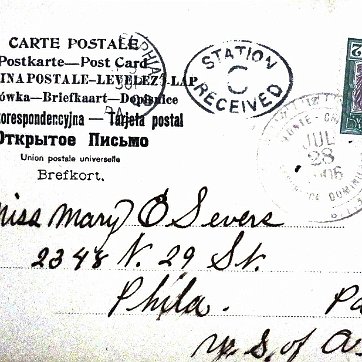 CARTE POSTALE
Postkarte—Post Card
INA POSTALE—LEVELEZŐ-LAP
ówka—Briefkaart—Dopisnice
orespondencyjna — Tarjeta postal
Открытое Письмо
Union postale universelle
Brefkort.
STATION
C
RECEIVED
JUL
28
Miss Mary E Severs
2348 N. 29 St.
Phila. Pa
U. S. of A